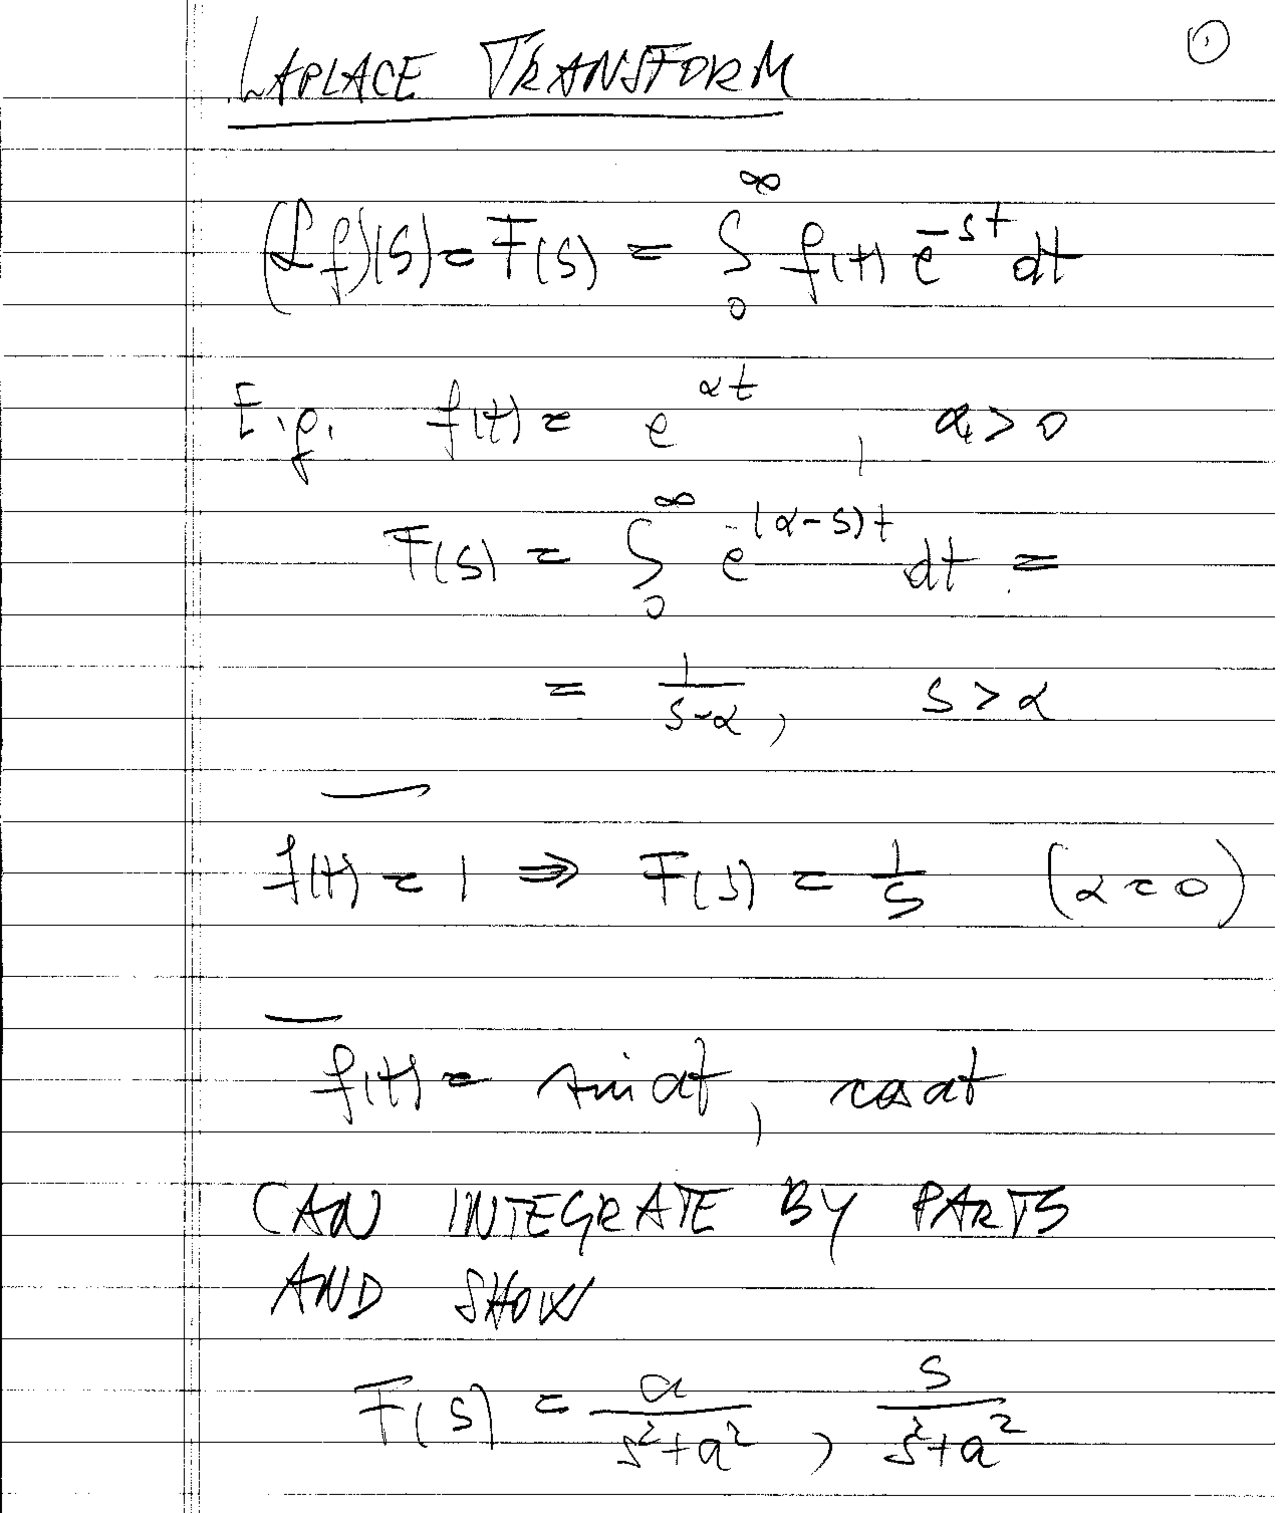 ①
LAPLACE TRANSFORM
(ℒf)(s) = F(s) = ∫₀^∞ f(t) e^{-st} dt
E.g. f(t) = e^{αt}, α > 0
F(s) = ∫₀^∞ e^{-(α-s)t} dt =
= 1/(s-α), s > α
f(t) = 1 ⇒ F(s) = 1/s (α = 0)
f(t) = sin at, cos at
CAN INTEGRATE BY PARTS
AND SHOW
F(s) = a/(s²+a²), s/(s²+a²)